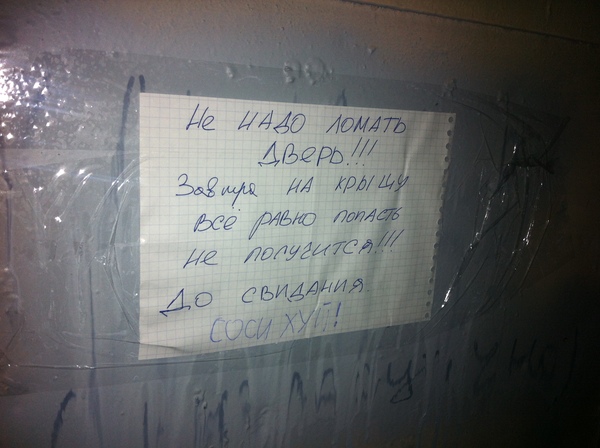 Не НАДО ЛОМАТЬ
ДВЕРЬ!!!
Завтра НА КРЫШУ
ВСЁ РАВНО ПОПАСТЬ
НЕ ПОЛУЧИТСЯ!!!
ДО СВИДАНИЯ
СОСИ ХУЙ!